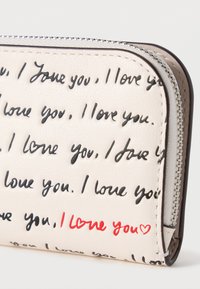 u, I love you, I love you
I love you, I love you.
u, I love you, I love you
love you. I love you.
e you, I love you♡